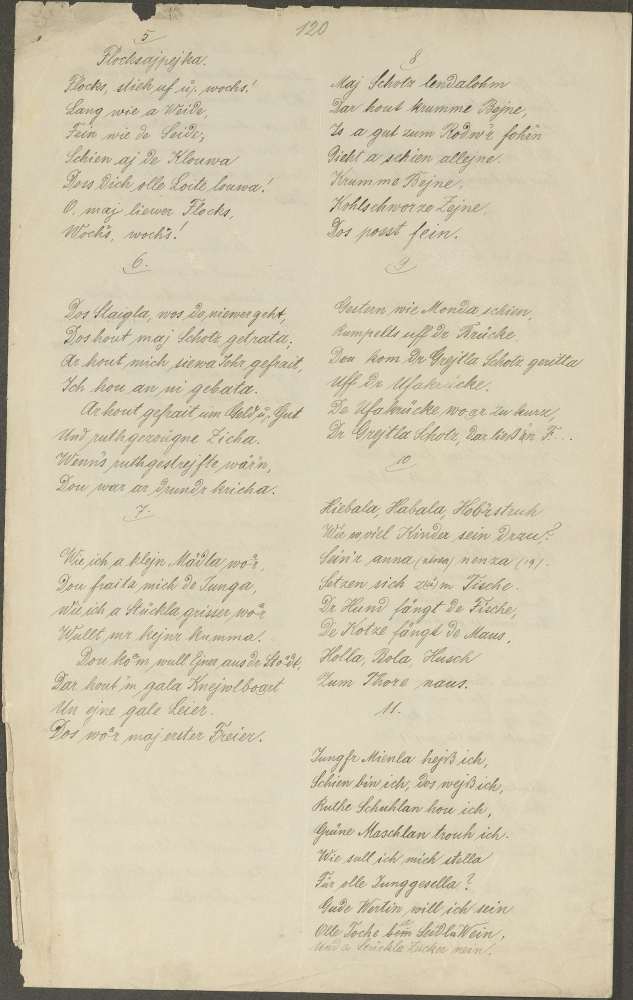 120
5
Flocksajpejka.
Flocks, stieh uf u. wochs!
Lang wie a Weide,
Fein wie de Seide,
Schien aj de Klouwa
Doss Dich olle Leite louwa!
O, maj liewer Flocks,
Wochs, wochs!
6.
Dos Staigla, wos do niewergeht,
Dos hout maj Schotz getrata;
Ar hout mich siewa Johr gefrait,
Ich hou an ni gebata.
Ar hout gefrait um Geld u. Gut
Und ruthgezeugne Zicha.
Wenn's ruthgestrejfte wär'n,
Dou war ar drundr kricha.
7.
Wie ich a klejn Mádla wo'r,
Dou fraits mich de Junga,
wie ich a Stückla grisser wo'r
Wullt mr kejnr kumma.
Dou ko'm wull Ejner aus dr Sto'dt,
Dar hout 'n gala Knejwlboart
Un ejne gale Leier.
Dos wo'r maj erster Freier.
8
Maj Schotz lendalohm
Dar hout krumme Bejne,
Is a gut zum Rodw'r fohr'n
Gieht a schien allejne.
Krumme Bejne,
Kohlschworze Zejne
Dos posst fein.
9
Gestern wie Monda schien,
Rumpelts uff dr Brücke
Dou kom Dr Grejtla Schotz geritta
Uff Dr Ufakrücke.
De Ufakrücke wo'r zu kurz,
Dr Grejtla Schotz, dar ließ än F...
10
Hiebala, Habala, Hob'rstruh
Wie wviel Kinda sein Drzu?
Sein'r anna nenza (19).
Setzen sich zum Tische.
Dr Hund fängt de Fische,
De Kotze fängt de Maus,
Holla, Bola, Husch
Zum Thore naus.
11.
Jungfr Mienla hejß ich,
Schien bin ich, dos wejß ich,
Ruthe Schuhlan hou ich,
Grüne Maschlan trouh ich.
Wie soll ich mich stella
Für olle Junggesella?
Gude Wertin will ich sein
Olle Toche beim Seidla Wein,
Und a Stückla Zucker nein.